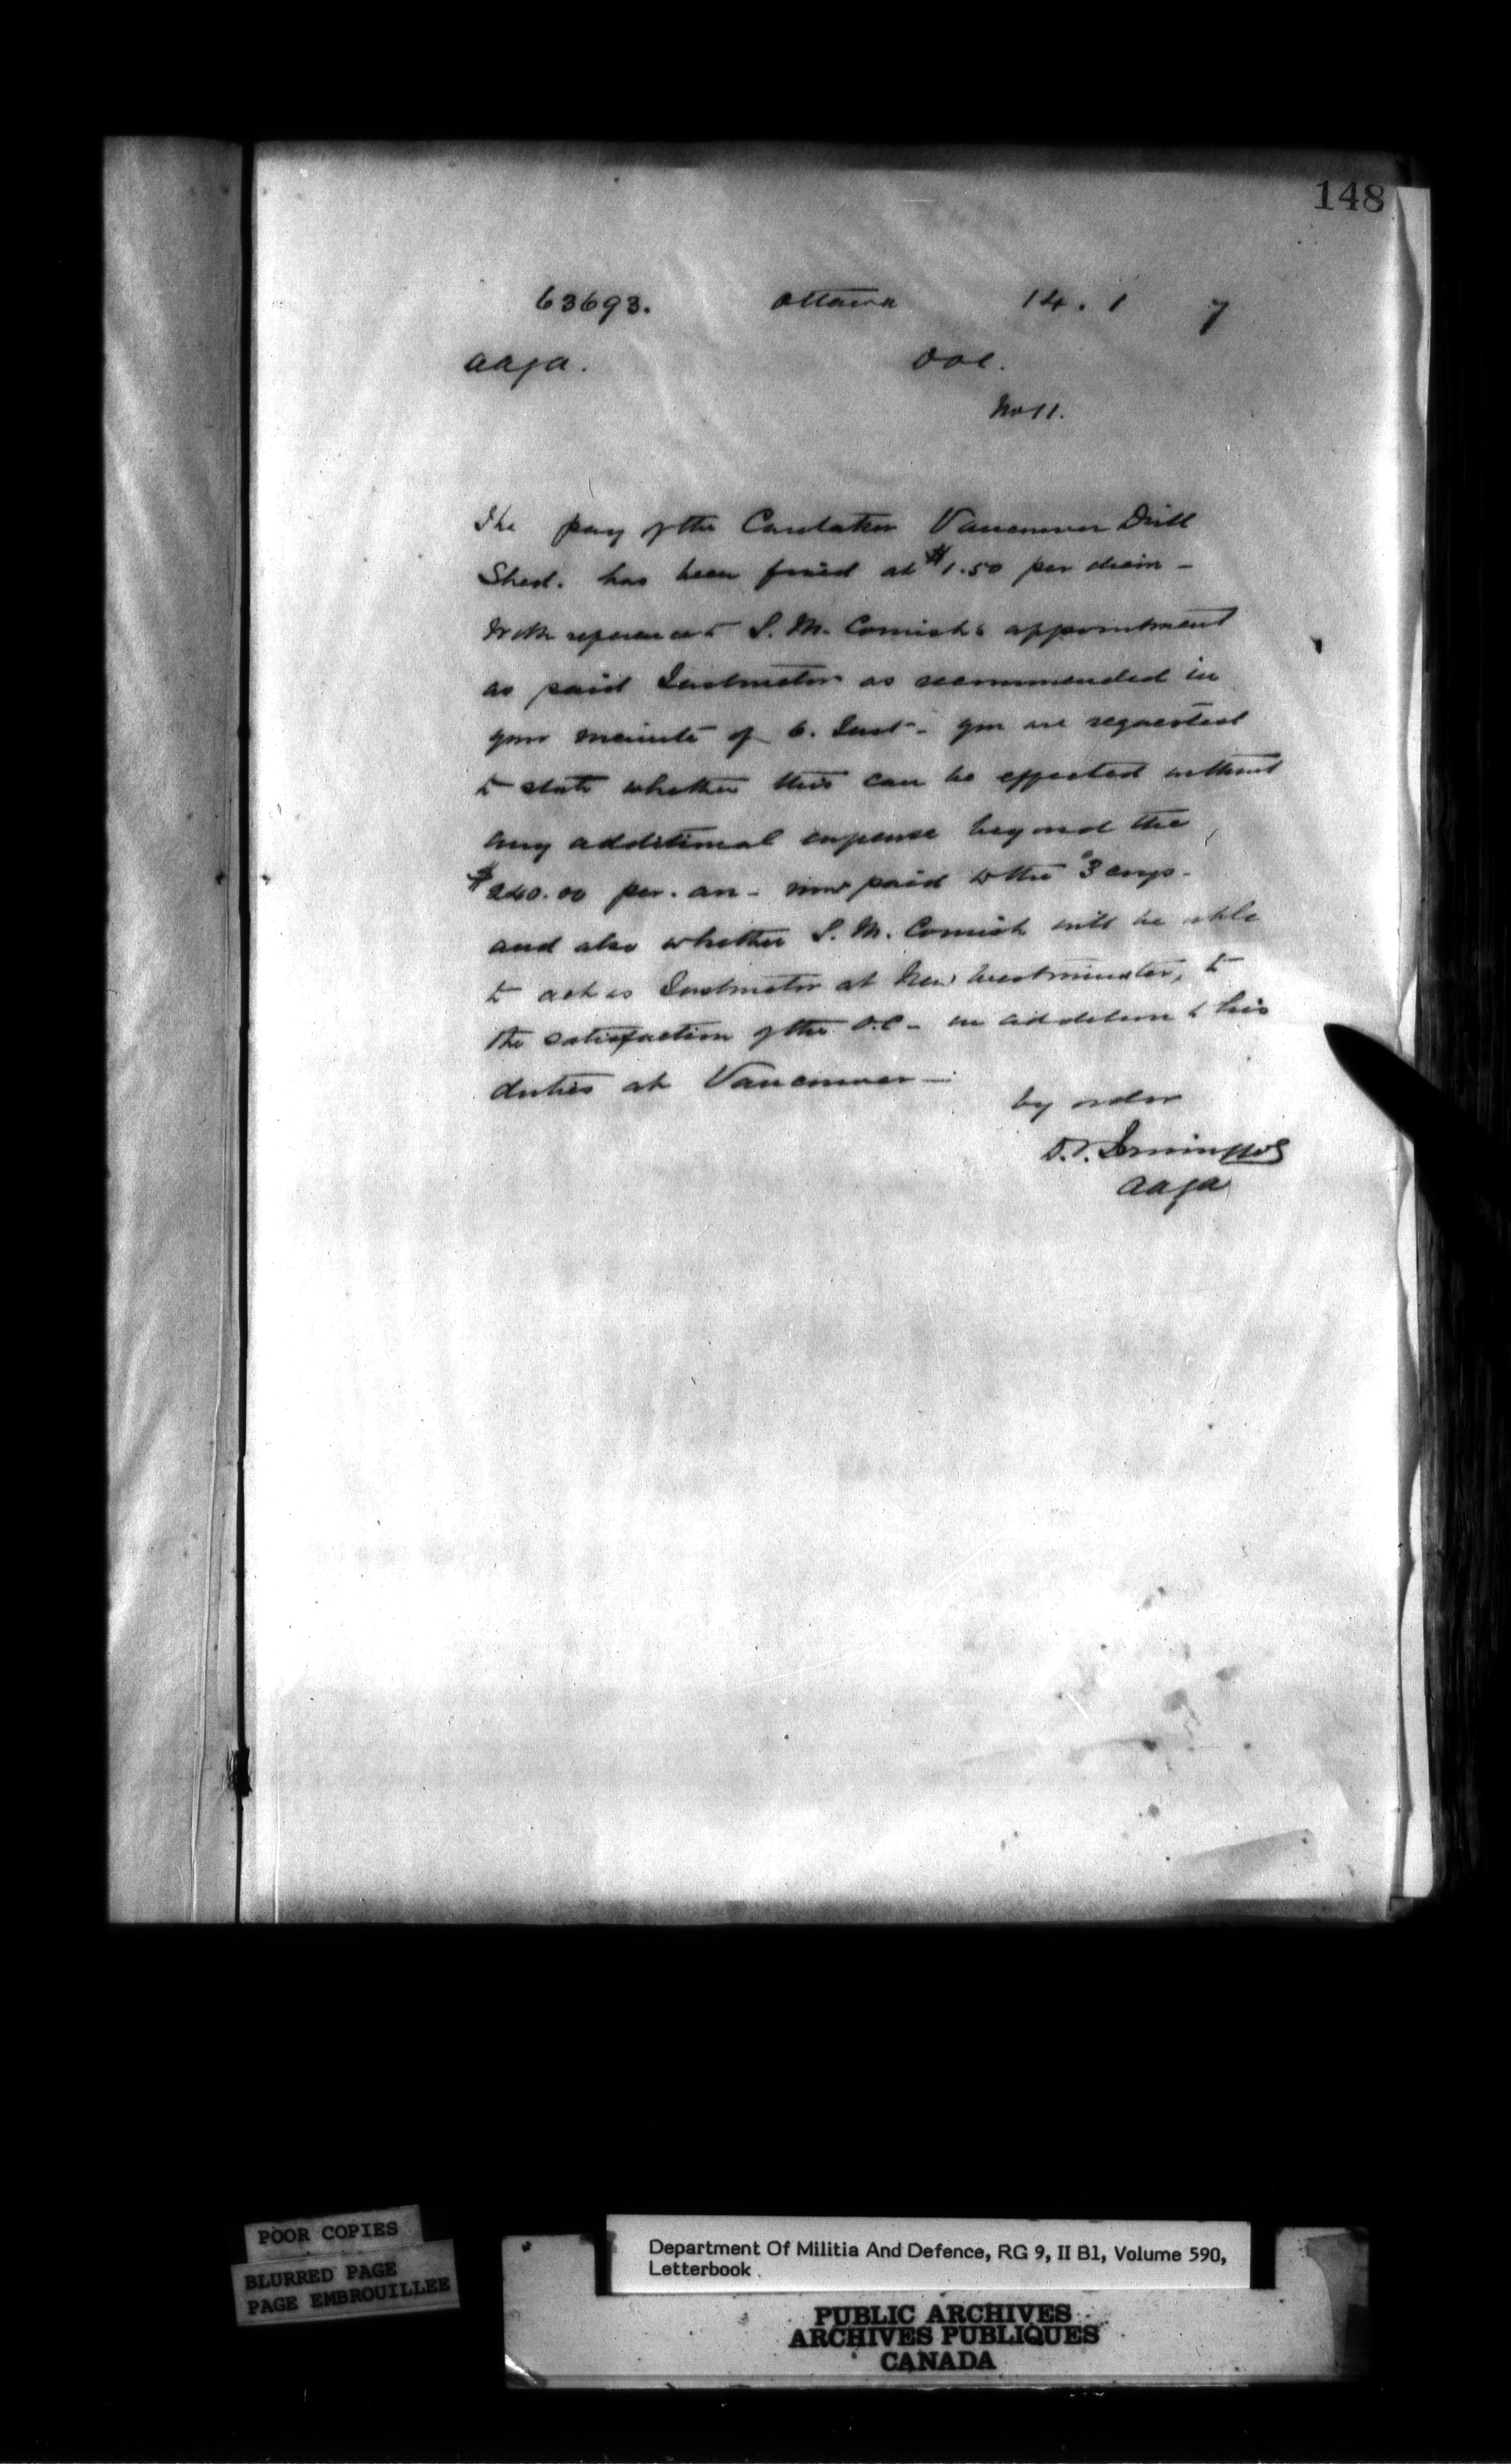 148
63693. Ottawa 14. 1 7
AAGA. DOC.
No 11.
The pay of the Caretaker Vancouver Drill
Shed. has been fixed at $1.50 per diem -
With reference to S. M. Cornish's appointment
as paid Instructor as recommended in
your minute of 6. Inst - you are requested
to state whether this can be effected without
any additional expense beyond the
$240.00 per. an - now paid to the 3 coys -
and also whether S. M. Cornish will be able
to act as Instructor at New Westminster, to
the satisfaction of the O.C - in addition to his
duties at Vancouver -
by order
D. T. Irwin
AAGA
POOR COPIES
BLURRED PAGE
PAGE EMBROUILLEE
Department Of Militia And Defence, RG 9, II B1, Volume 590,
Letterbook
PUBLIC ARCHIVES
ARCHIVES PUBLIQUES
CANADA